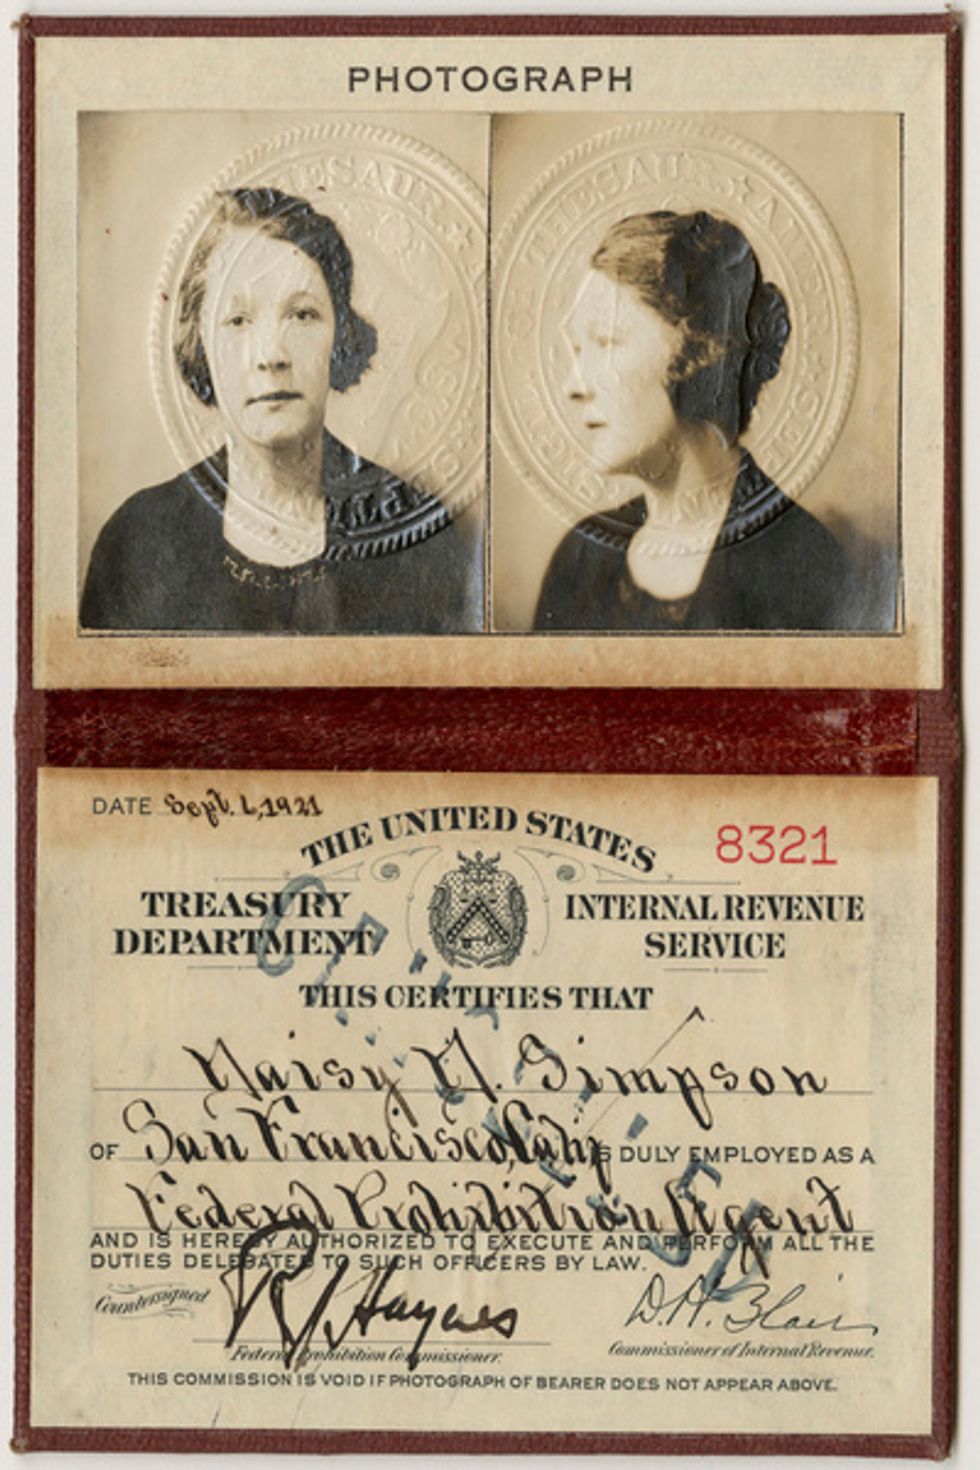 PHOTOGRAPH
THESAUR. AMER. SE
DATE Sept. 6, 1921
THE UNITED STATES
8321
TREASURY
DEPARTMENT
INTERNAL REVENUE
SERVICE
THIS CERTIFIES THAT
Daisy D. Simpson
OF San Francisco, IS DULY EMPLOYED AS A
Federal Prohibition Agent
AND IS HEREBY AUTHORIZED TO EXECUTE AND PERFORM ALL THE
DUTIES DELEGATED TO SUCH OFFICERS BY LAW.
Countersigned
R. Haynes
D. H. Blair
Federal Prohibition Commissioner.
Commissioner of Internal Revenue.
THIS COMMISSION IS VOID IF PHOTOGRAPH OF BEARER DOES NOT APPEAR ABOVE.